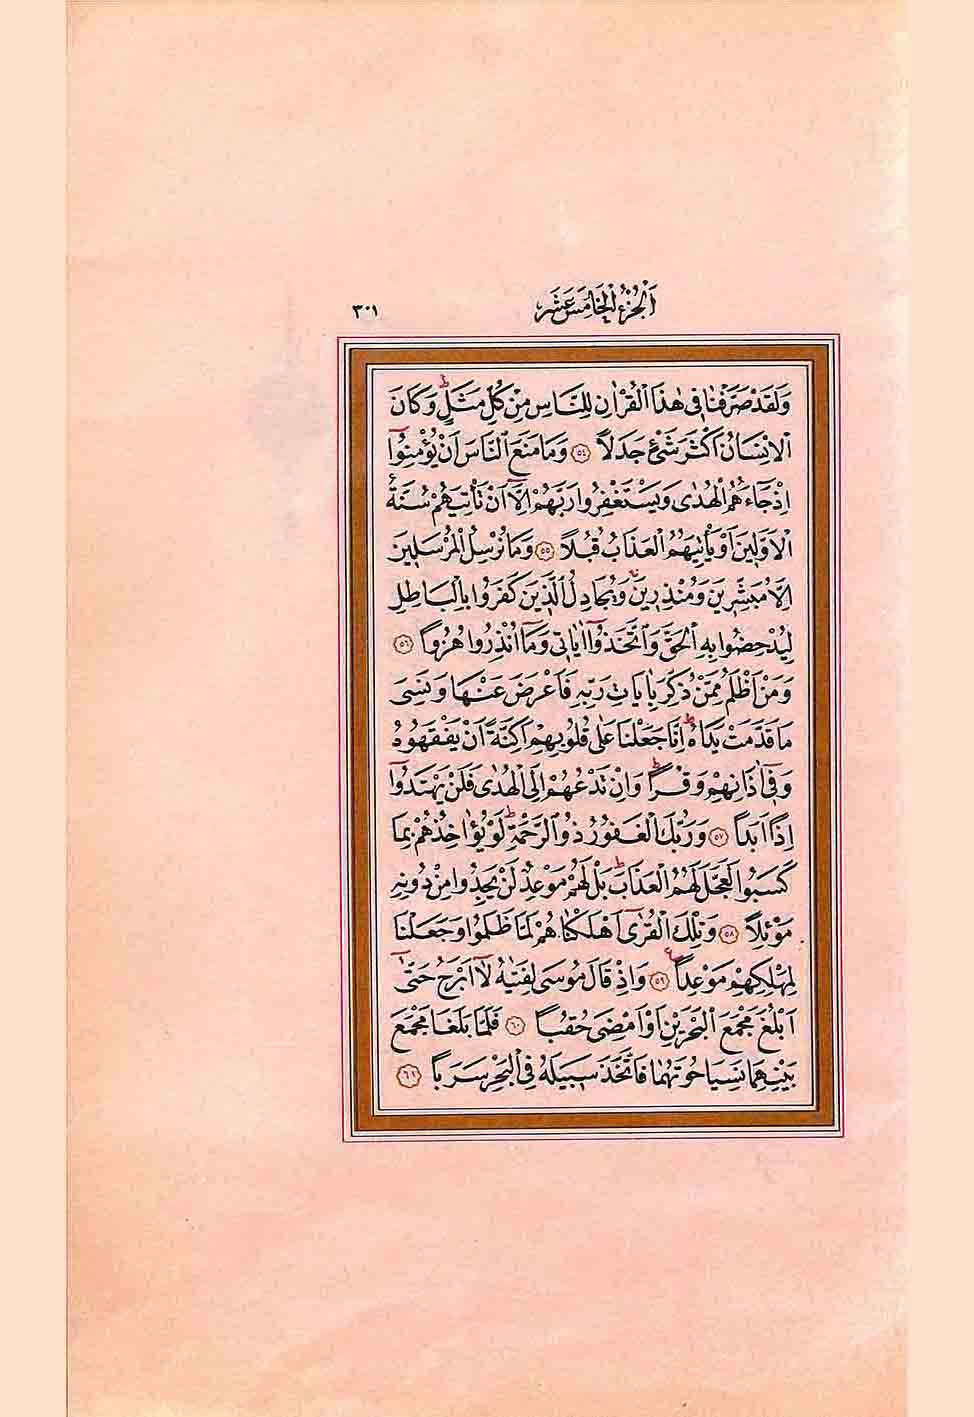 اَلْجُزْءُ الْخَامِسَ عَشَرَ ٣٠١
وَلَقَدْ صَرَّفْنَا فِى هٰذَا الْقُرْاٰنِ لِلنَّاسِ مِنْ كُلِّ مَثَلٍ ط وَكَانَ
الْاِنْسَانُ اَكْثَرَ شَىْءٍ جَدَلاً ٥٤ وَمَا مَنَعَ النَّاسَ اَنْ يُؤْمِنُٓوا
اِذْ جَٓاءَهُمُ الْهُدٰى وَيَسْتَغْفِرُوا رَبَّهُمْ اِلَّٓا اَنْ تَأْتِيَهُمْ سُنَّةُ
الْاَوَّلٖينَ اَوْ يَأْتِيَهُمُ الْعَذَابُ قُبُلاً ٥٥ وَمَا نُرْسِلُ الْمُرْسَلٖينَ
اِلَّا مُبَشِّرٖينَ وَمُنْذِرٖينَ ج وَيُجَادِلُ الَّذٖينَ كَفَرُوا بِالْبَاطِلِ
لِيُدْحِضُوا بِهِ الْحَقَّ وَاتَّخَذُٓوا اٰيَاتٖى وَمَٓا اُنْذِرُوا هُزُوًا ٥٦
وَمَنْ اَظْلَمُ مِمَّنْ ذُكِّرَ بِاٰيَاتِ رَبِّهٖ فَاَعْرَضَ عَنْهَا وَنَسِىَ
مَا قَدَّمَتْ يَدَاهُ ط اِنَّا جَعَلْنَا عَلٰى قُلُوبِهِمْ اَكِنَّةً اَنْ يَفْقَهُوهُ
وَفٖٓى اٰذَانِهِمْ وَقْرًا ط وَاِنْ تَدْعُهُمْ اِلَى الْهُدٰى فَلَنْ يَهْتَدُٓوا
اِذًا اَبَدًا ٥٧ وَرَبُّكَ الْغَفُورُ ذُو الرَّحْمَةِ ط لَوْ يُؤَاخِذُهُمْ بِمَا
كَسَبُوا لَعَجَّلَ لَهُمُ الْعَذَابَ ط بَلْ لَهُمْ مَوْعِدٌ لَنْ يَجِدُوا مِنْ دُونِهٖ
مَوْئِلاً ٥٨ وَتِلْكَ الْقُرٰٓى اَهْلَكْنَاهُمْ لَمَّا ظَلَمُوا وَجَعَلْنَا
لِمَهْلِكِهِمْ مَوْعِدًا ع ٥٩ وَاِذْ قَالَ مُوسٰى لِفَتٰيهُ لَٓا اَبْرَحُ حَتّٰٓى
اَبْلُغَ مَجْمَعَ الْبَحْرَيْنِ اَوْ اَمْضِىَ حُقُبًا ٦٠ فَلَمَّا بَلَغَا مَجْمَعَ
بَيْنِهِمَا نَسِيَا حُوتَهُمَا فَاتَّخَذَ سَبٖيلَهُ فِى الْبَحْرِ سَرَبًا ٦١